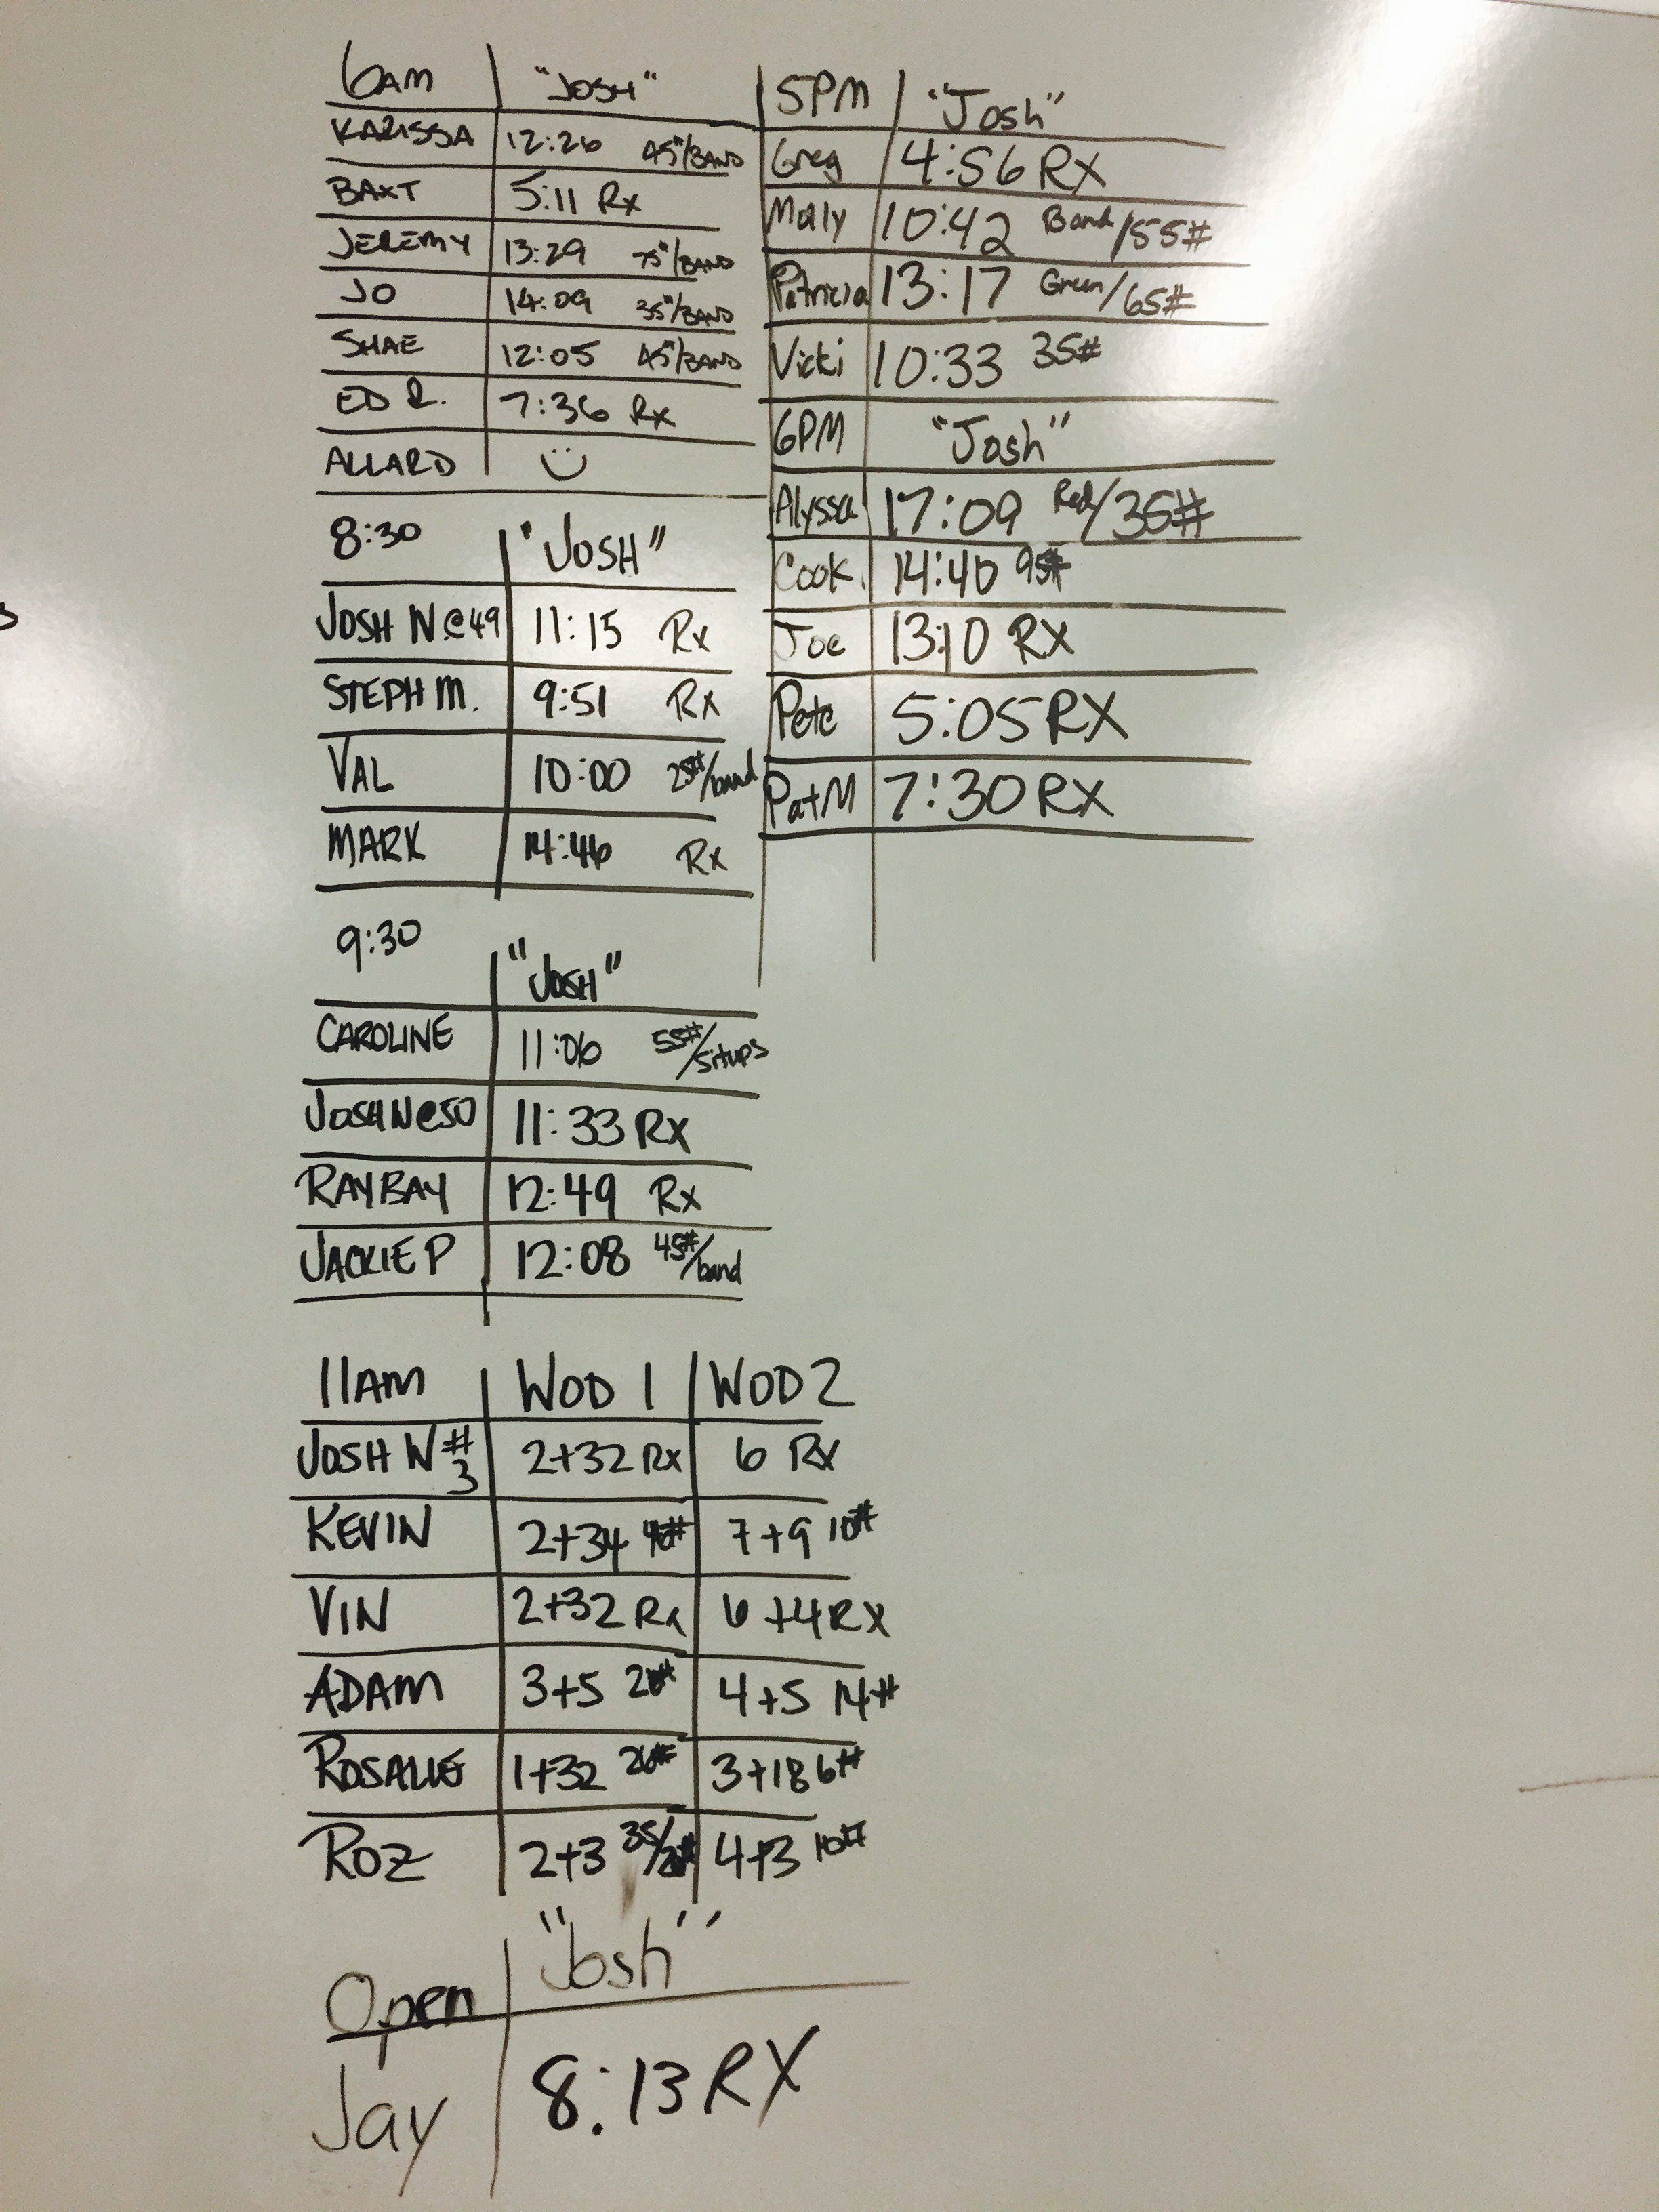 6AM "JOSH"
KARISSA 12:26 45#/BAND
BAXT 5:11 Rx
JEREMY 13:29 75#/BAND
JO 14:09 35#/BAND
SHAE 12:05 45#/BAND
ED R. 7:36 Rx
ALLARD
8:30 "JOSH"
JOSH N @ 49 11:15 Rx
STEPH M. 9:51 Rx
VAL 10:00 25#/band
MARK 14:46 Rx
9:30 "JOSH"
CAROLINE 11:06 55#/situps
JOSH N @ 50 11:33 RX
RAYBAY 12:49 Rx
JACKIE P 12:08 45#/band
11AM WOD 1 WOD 2
JOSH N #3 2+32 Rx 6 Rx
KEVIN 2+34 7+9 10#
VIN 2+32 Rx 6+4 RX
ADAM 3+5 4+5 14#
ROSALIE 1+32 26# 3+18 6#
ROZ 2+3 4+3 10#
Open "Josh"
Jay 8:13 RX
5PM "Josh"
Greg 4:56 RX
Molly 10:42 Band/55#
Patricia 13:17 Green/65#
Vicki 10:33 35#
6PM "Josh"
Alyssa 17:09 Red/35#
Cook. 14:40 95#
Joe 13:10 RX
Pete 5:05 RX
Pat M 7:30 RX